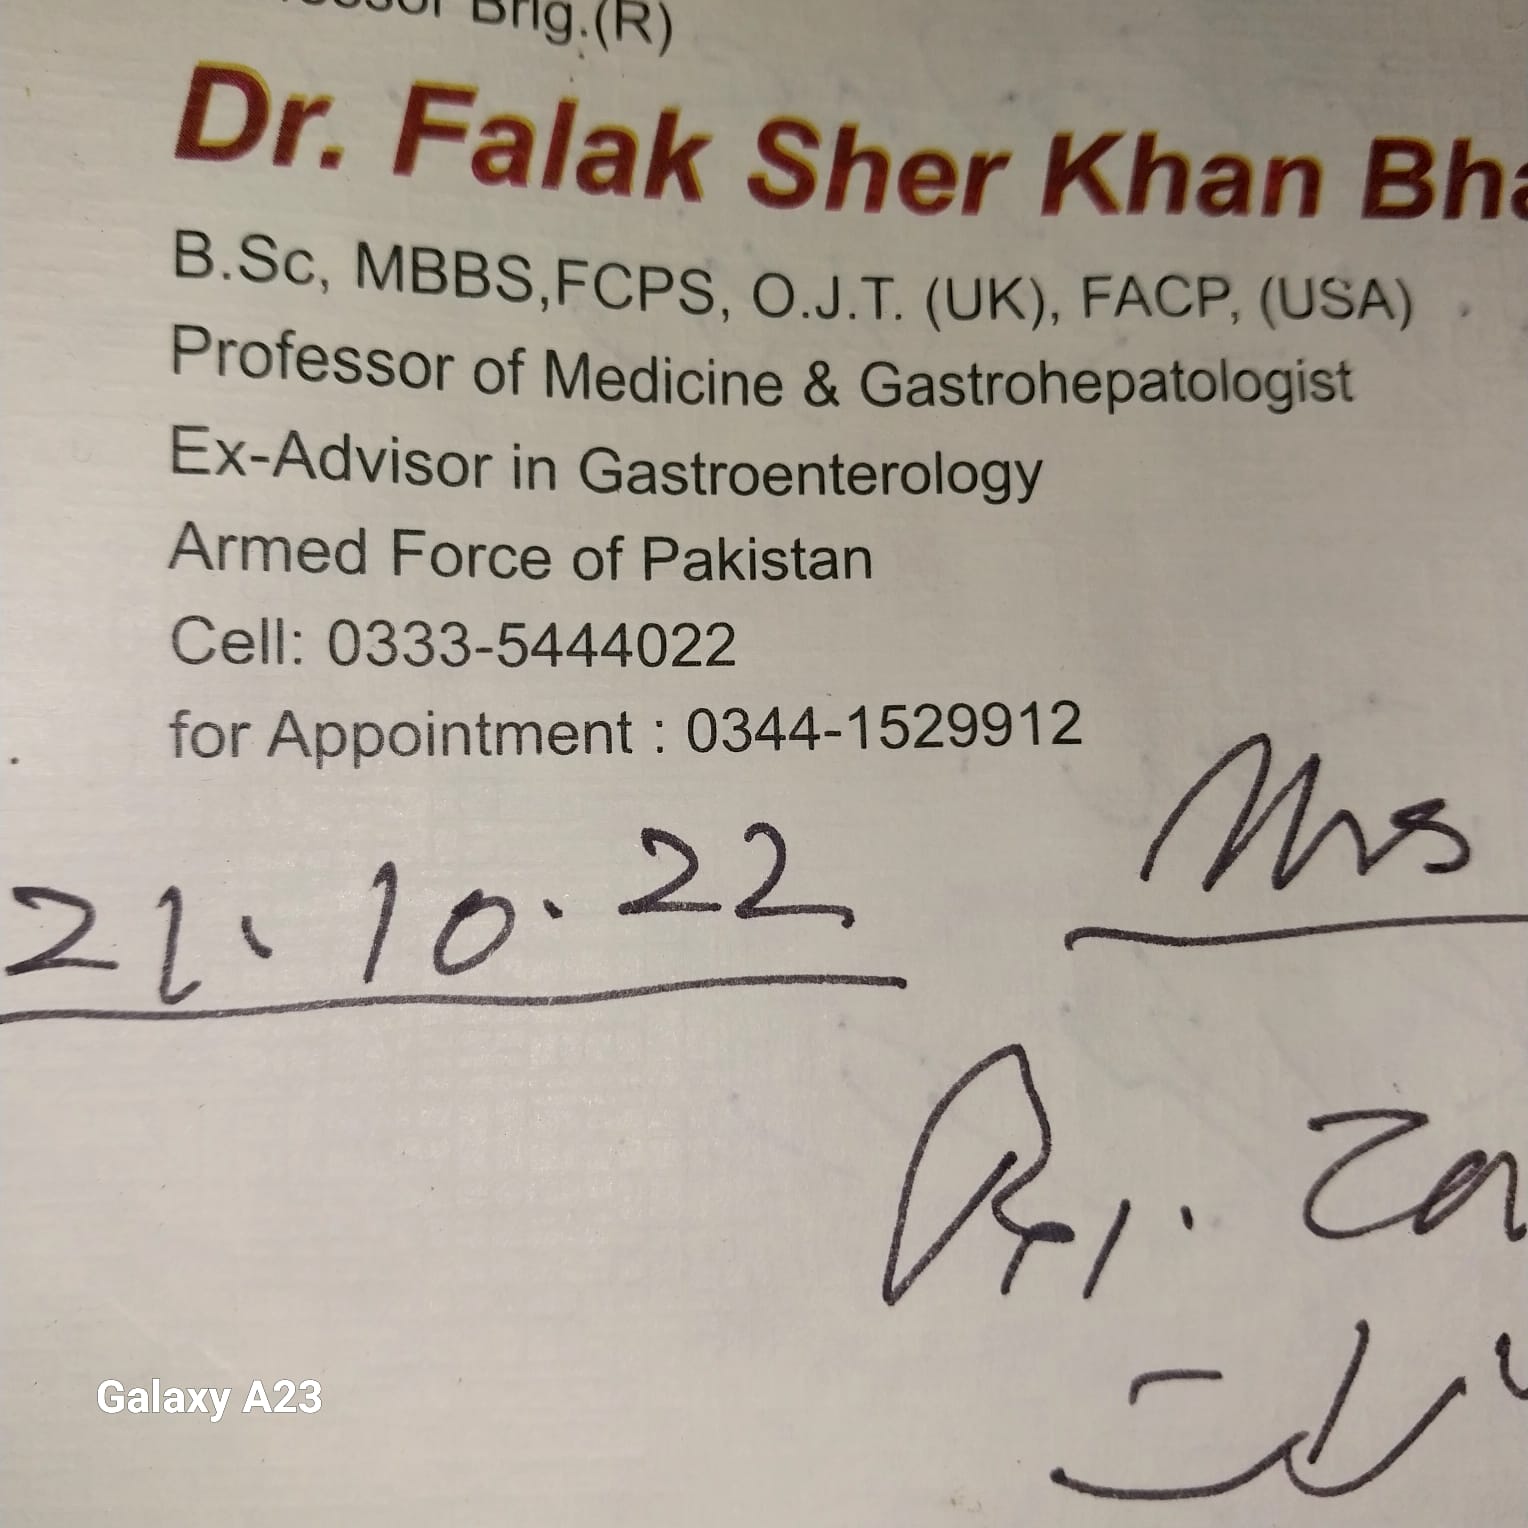 Brig.(R)
Dr. Falak Sher Khan Bha
B.Sc, MBBS,FCPS, O.J.T. (UK), FACP, (USA)
Professor of Medicine & Gastrohepatologist
Ex-Advisor in Gastroenterology
Armed Force of Pakistan
Cell: 0333-5444022
for Appointment : 0344-1529912
Mrs
21. 10. 22
Rx 1.
Galaxy A23